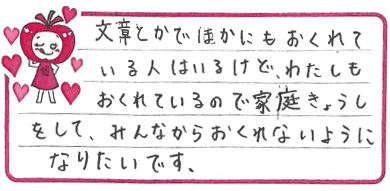 文章とかでほかにもおくれて
いる人はいるけど、わたしも
おくれているので家庭きょうし
をして、みんなからおくれないように
なりたいです、